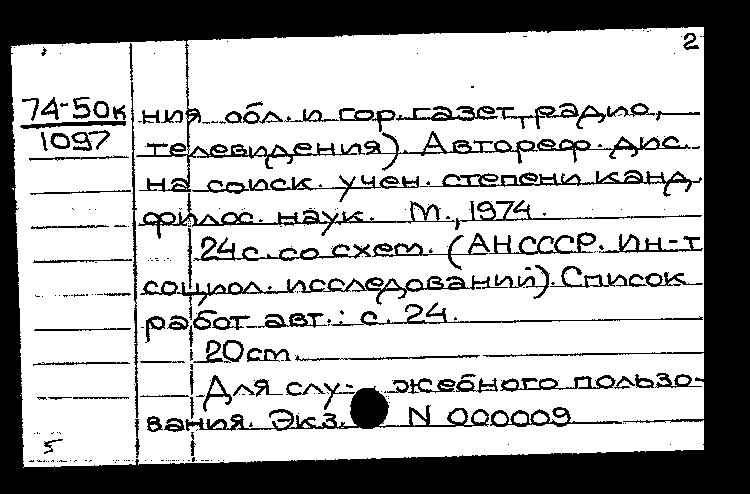 2
74-50к ния обл. и гор. газет, радио,
1097 телевидения). Автореф. дис.
на соиск. учен. степени канд.
филос. наук. М., 1974.
24 с. со схем. (АН СССР. Ин-т
социол. исследований). Список
работ авт.: с. 24.
20 см.
Для слу- жебного пользо-
вания. Экз. N 000009
5